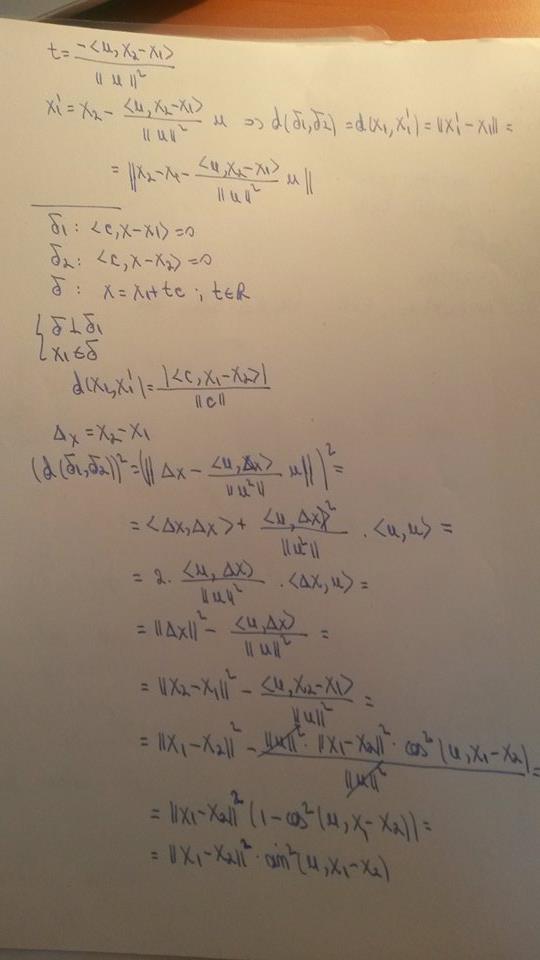 t = -<u, x₂-x₁> / ||u||²
x₁' = x₂ - <u, x₂-x₁> / ||u||² u => d(δ₁,δ₂) = d(x₁,x₁') = ||x₁'-x₁|| =
= ||x₂-x₁ - <u, x₂-x₁> / ||u||² u||
δ₁ : <c, x-x₁> = 0
δ₂ : <c, x-x₂> = 0
δ : x = x₁+tc ; t∈R
{ δ ⊥ δ₁
x₁ ∈ δ
d(x₁,x₁') = |<c, x₁-x₂>| / ||c||
Δx = x₂-x₁
(d(δ₁,δ₂))² = (||Δx - <u, Δx> / ||u²|| u||)² =
= <Δx,Δx> + <u, Δx>² / ||u²|| . <u,u> =
= 2. <u, Δx> / ||u||² . <Δx,u> =
= ||Δx||² - <u,Δx> / ||u||² =
= ||x₂-x₁||² - <u, x₂-x₁> / ||u||² =
= ||x₁-x₂||² - ||u||² · ||x₁-x₂||² · cos²(u, x₁-x₂) / ||u||² =
= ||x₁-x₂||² (1-cos²(u, x₁-x₂)) =
= ||x₁-x₂||² · sin²(u, x₁-x₂)